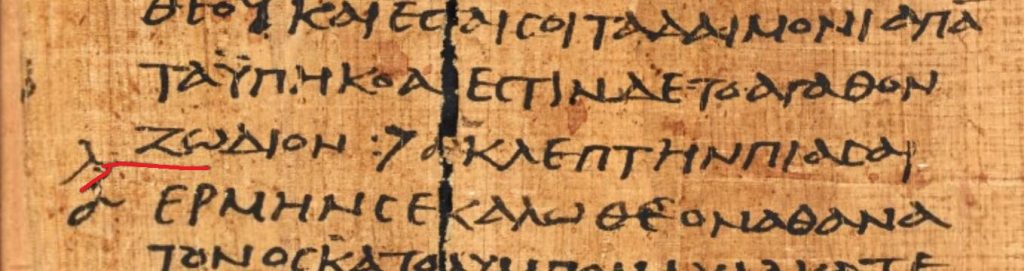 ΘΕΟΥ ΚΑΙ ΕСΤΑΙ СΟΙ ΤΑ ΔΑΙΜΟΝΙΑ ΠΑ
ΤΑ ΫΠΗΚΟΑ ΕСΤΙΝ ΔΕ ΤΟ ΑΓΑΘΟΝ
ΖΩΔΙΟΝ : ΚΛΕΠΤΗΝ ΠΙΑСΑΙ
ΕΡΜΗΝ СΕ ΚΑΛΩ ΘΕΟΝ ΑΘΑΝΑ
ΤΟΝ ΟС ΚΑΤ